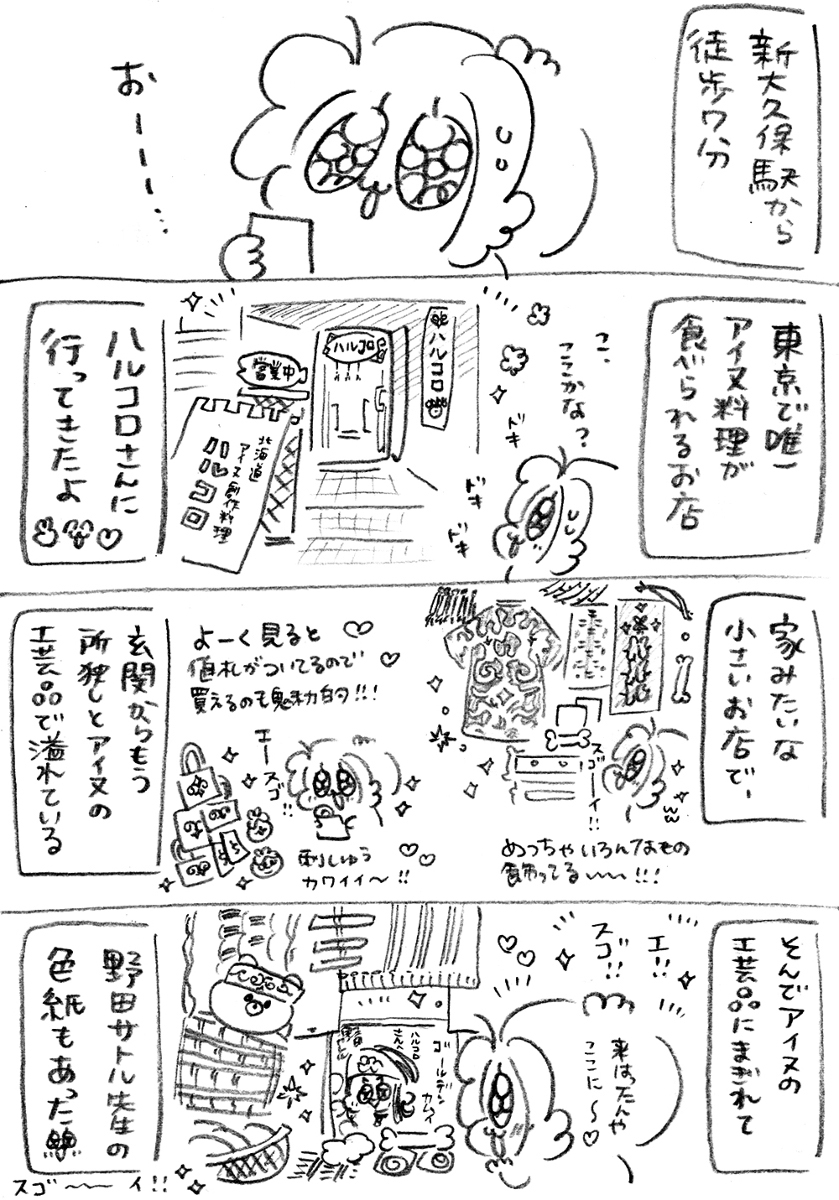 新大久保駅から
徒歩7分
おーーー…
東京で唯一
アイヌ料理が
食べられるお店
こ、
ここかな?
ドキ
ドキ
ドキ
ハルコロ
ハルコロ
営業中
北海道
アイヌ創作料理
ハルコロ
ハルコロさんに
行ってきたよ
家みたいな
小さいお店で、
スゴーイ!!
めっちゃいろんなもの
飾ってる〜!!!
よーく見ると
値札がついてるので
買えるのも魅力的!!!
エースゴ!!
刺しゅう
カワイイ〜!!
玄関からもう
所狭しとアイヌの
工芸品で溢れている
そんでアイヌの
工芸品にまぎれて
エ!!
スゴ!!
来はったんや
ここに〜
ゴールデン
カムイ
ハルコロ
さんへ
野田サトル先生の
色紙もあった
スゴ〜イ!!